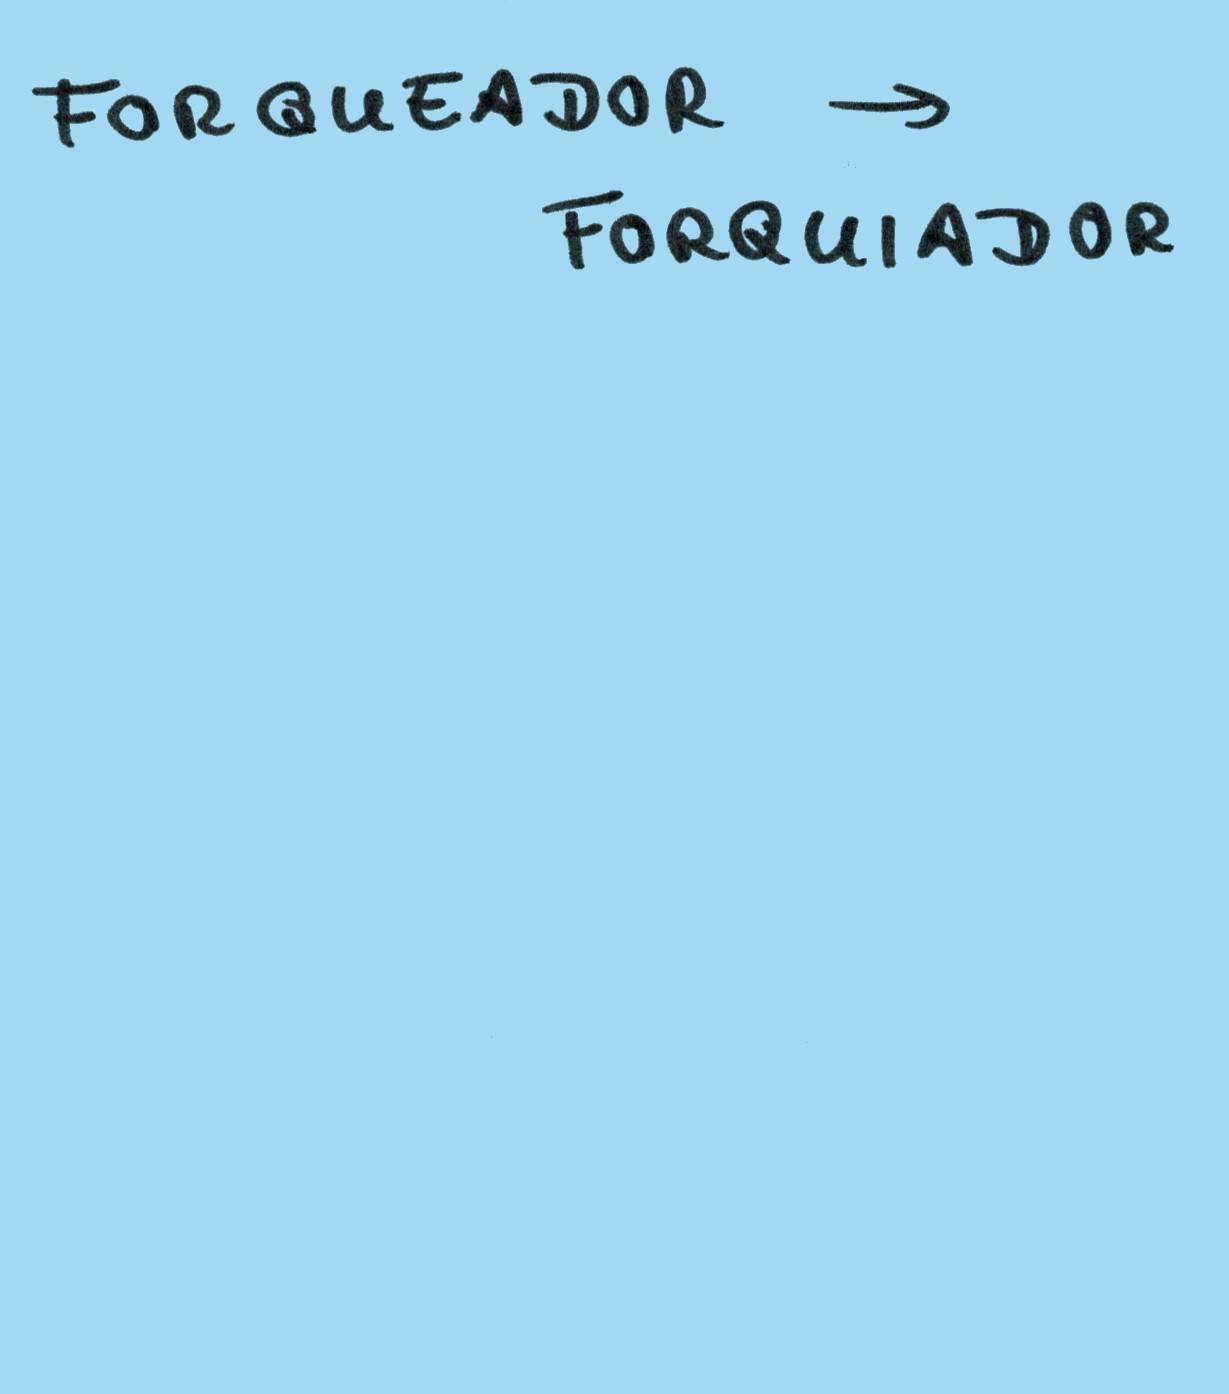 FORQUEADOR →
FORQUIADOR